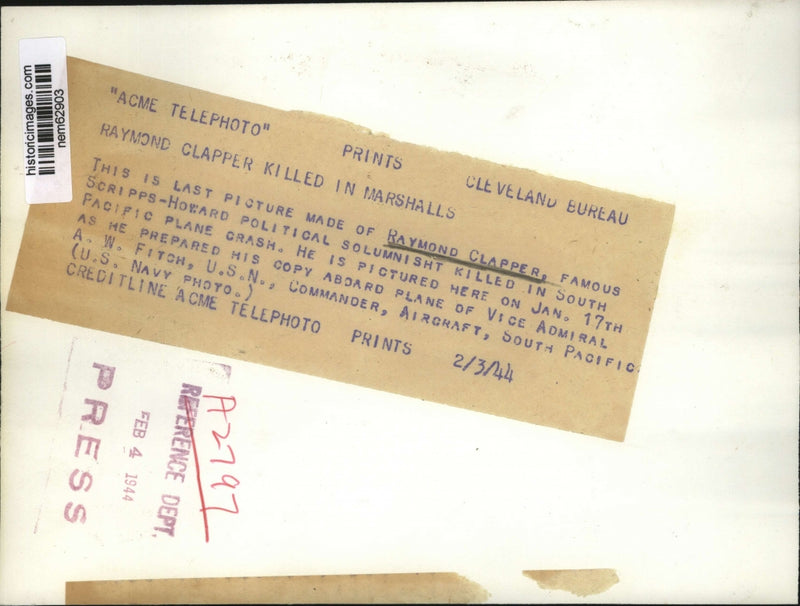 historicimages.com
nem62903
"ACME TELEPHOTO" PRINTS CLEVELAND BUREAU
RAYMOND CLAPPER KILLED IN MARSHALLS
THIS IS LAST PICTURE MADE OF RAYMOND CLAPPER, FAMOUS
SCRIPPS-HOWARD POLITICAL SOLUMNISHT KILLED IN SOUTH
PACIFIC PLANE CRASH. HE IS PICTURED HERE ON JAN. 17TH
AS HE PREPARED HIS COPY ABOARD PLANE OF VICE ADMIRAL
A. W. FITCH, U.S.N., COMMANDER, AIRCRAFT, SOUTH PACIFIC.
(U.S. NAVY PHOTO.)
CREDITLINE ACME TELEPHOTO PRINTS 2/3/44
A2797
REFERENCE DEPT.
FEB 4 1944
PRESS